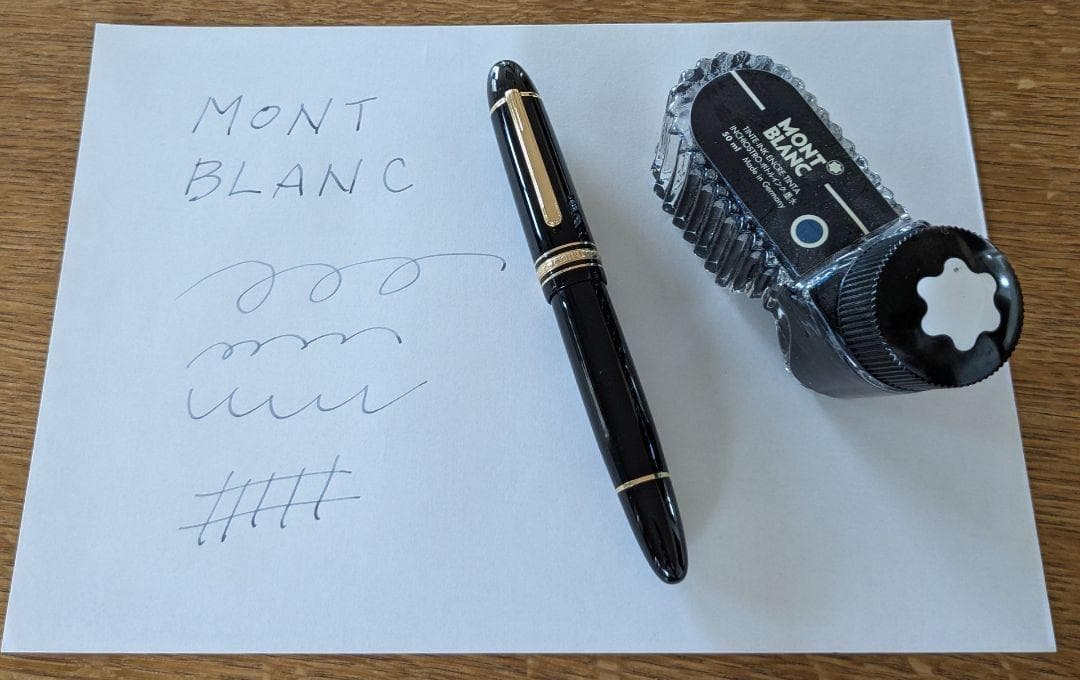 MONT
BLANC
MONT
BLANC
TINTE·INK·ENCRE·TINTA
INCHIOSTRO·ボトルインク·墨水
50 ml Made in Germany